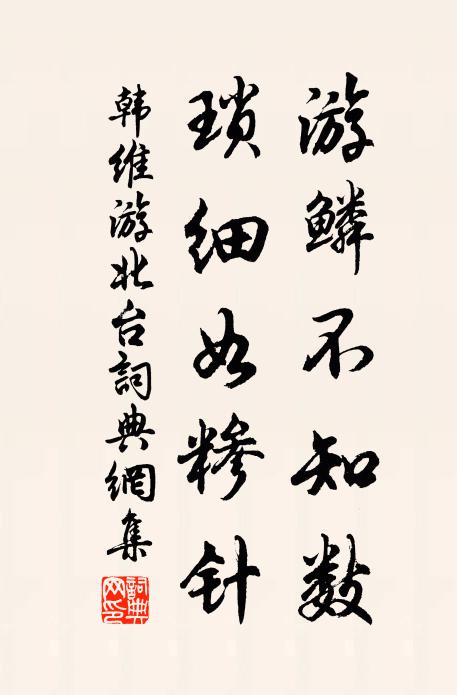 游鳞不知数
琐细如糁针
韩维游北台詞典網集
詞典网印